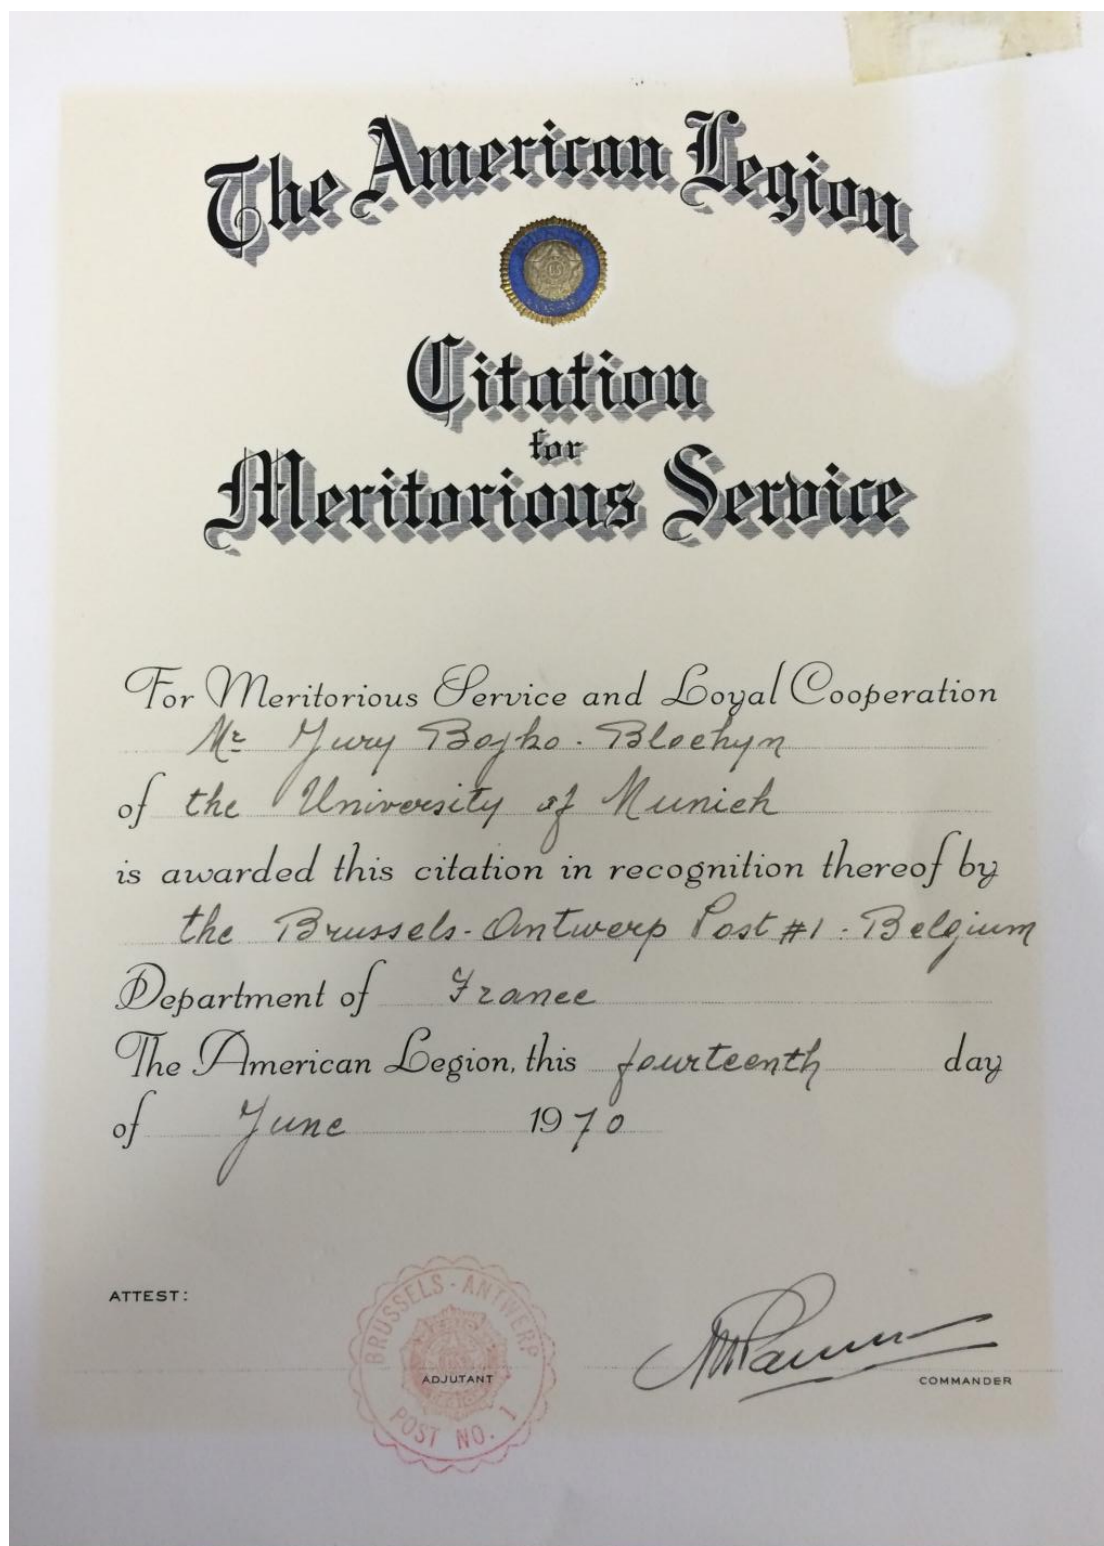 The American Legion
Citation
for
Meritorious Service
For Meritorious Service and Loyal Cooperation
Mr Yury Bojko-Blochyn
of the University of Munich
is awarded this citation in recognition thereof by
the Brussels-Antwerp Post #1-Belgium
Department of France
The American Legion, this fourteenth day
of June 1970
ATTEST:
BRUSSELS-ANTWERP
POST NO. 1
ADJUTANT
COMMANDER